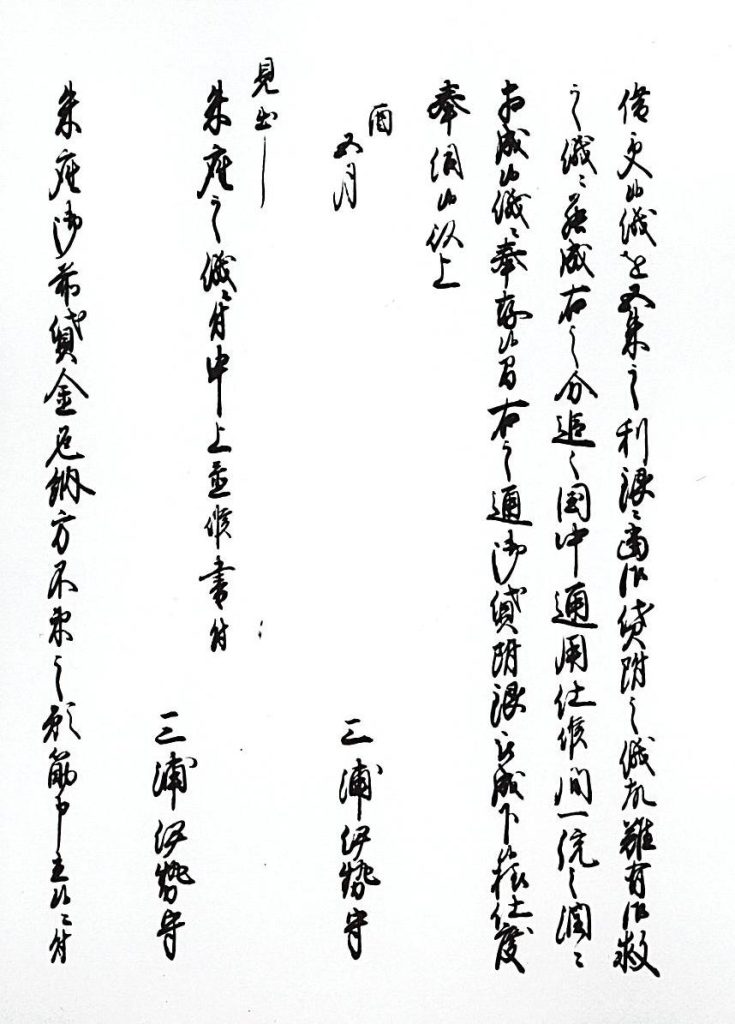 借更候儀を五朱之利銀ニ而御貸附之儀故難有御救
之儀ニ罷成右之分追々国中通用仕候間一統之潤ニ
相成候儀ニ奉存候間右之通御貸附銀被成下候様仕度
奉伺候以上
酉
五月
三浦伊勢守
見出し
朱座之儀ニ付申上置候書付
三浦伊勢守
朱座御前貸金返納方不束之願筋申立候ニ付